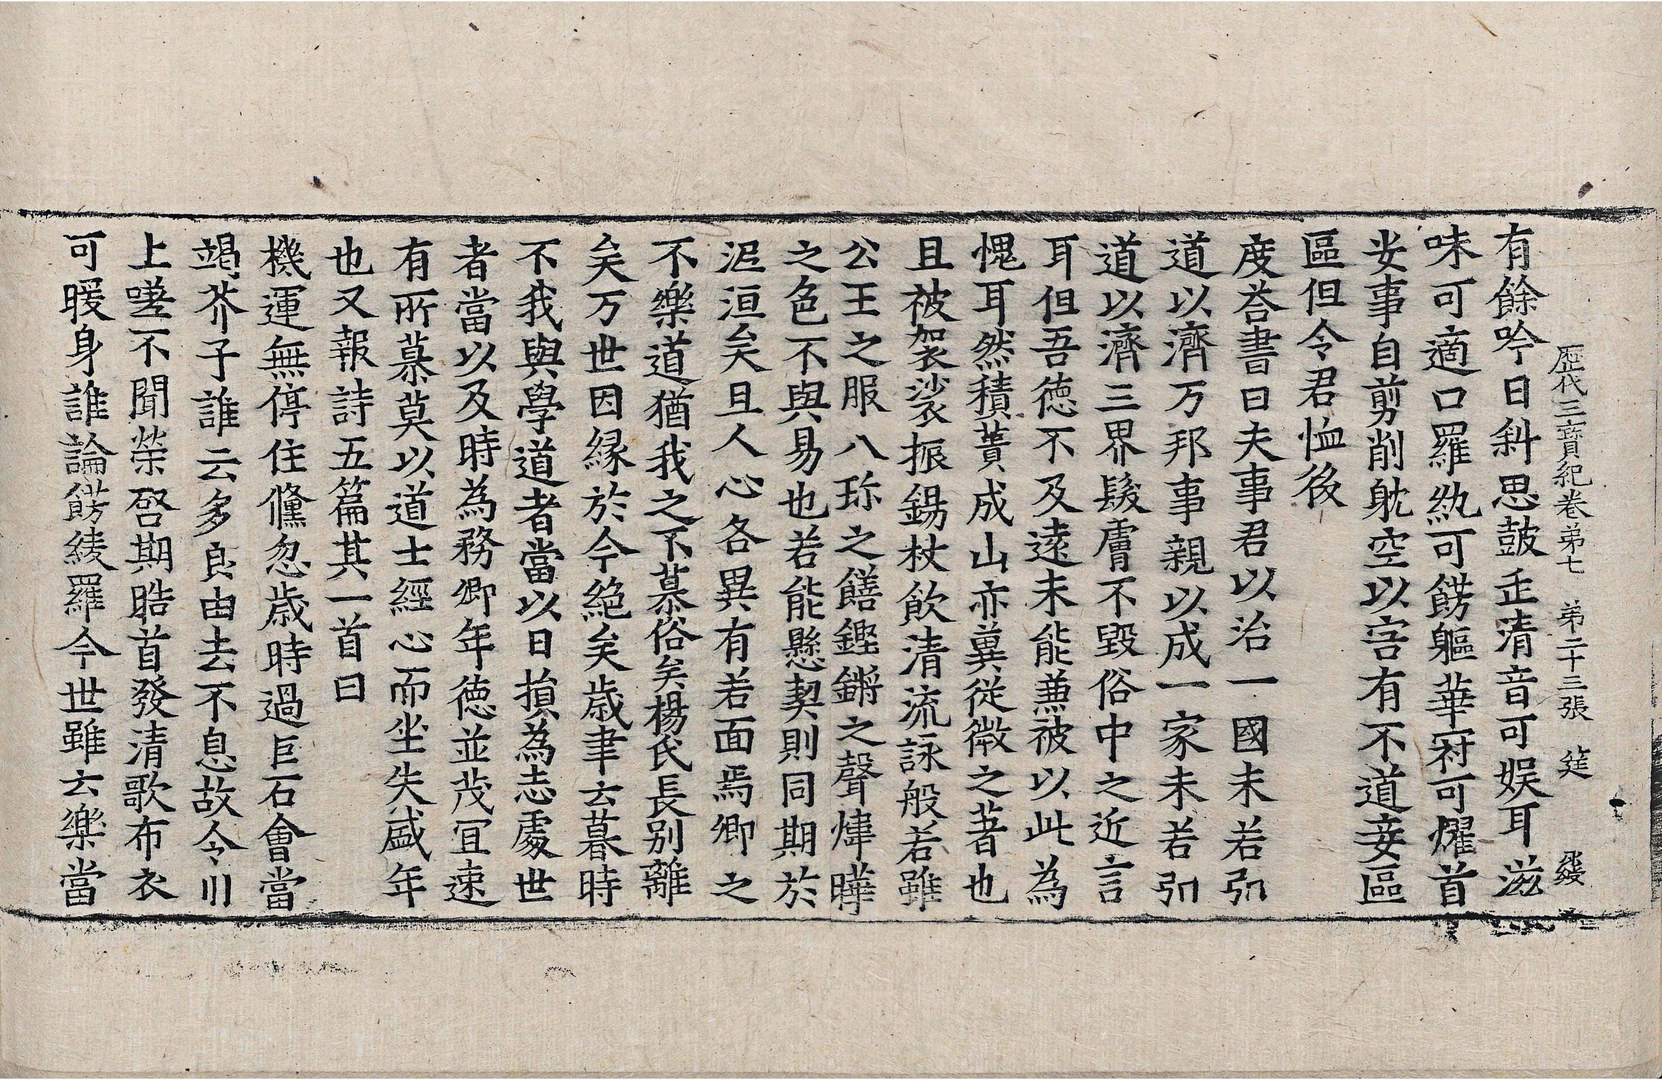 歷代三寶紀卷第七 第二十三張 筵 發
有餘吟日斜思鼓缶清音可娛耳滋
味可適口羅紈可餝軀華冠可燿首
安事自剪削耽空以害有不道妾區
區但令君恤後
度荅書曰夫事君以治一國未若弘
道以濟万邦事親以成一家未若弘
道以濟三界髮膚不毀俗中之近言
耳但吾德不及遠未能兼被以此為
愧耳然積蕢成山亦冀從微之著也
且被袈裟振錫杖飲清流詠般若雖
公王之服八珎之饍鏗鏘之聲煒曄
之色不與易也若能懸契則同期於
泥洹矣且人心各異有若面焉卿之
不樂道猶我之不慕俗矣楊氏長別離
矣万世因緣於今絕矣歲聿云暮時
不我與學道者當以日損為志處世
者當以及時為務卿年德並茂冝速
有所慕莫以道士經心而坐失盛年
也又報詩五篇其一首曰
機運無停住儵忽歲時過巨石會當
竭芥子誰云多良由去不息故令川
上嗟不聞榮啓期晧首發清歌布衣
可暖身誰論餝綾羅今世雖云樂當